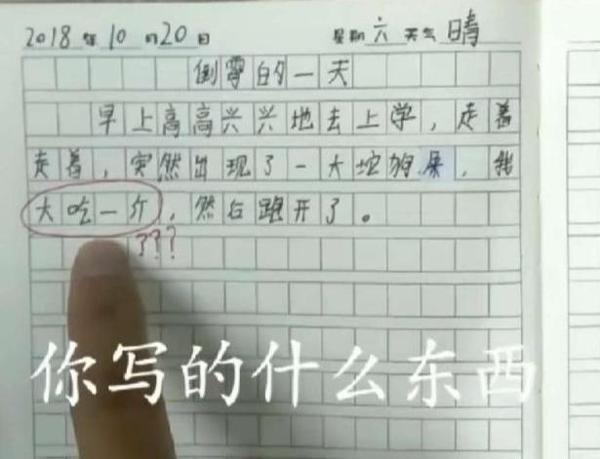 2018年10月20日 星期六 天气晴
倒霉的一天
早上高高兴兴地去上学，走着
走着，突然出现了一大坨狗屎，我
大吃一斤，然后跑开了。
???
你写的什么东西